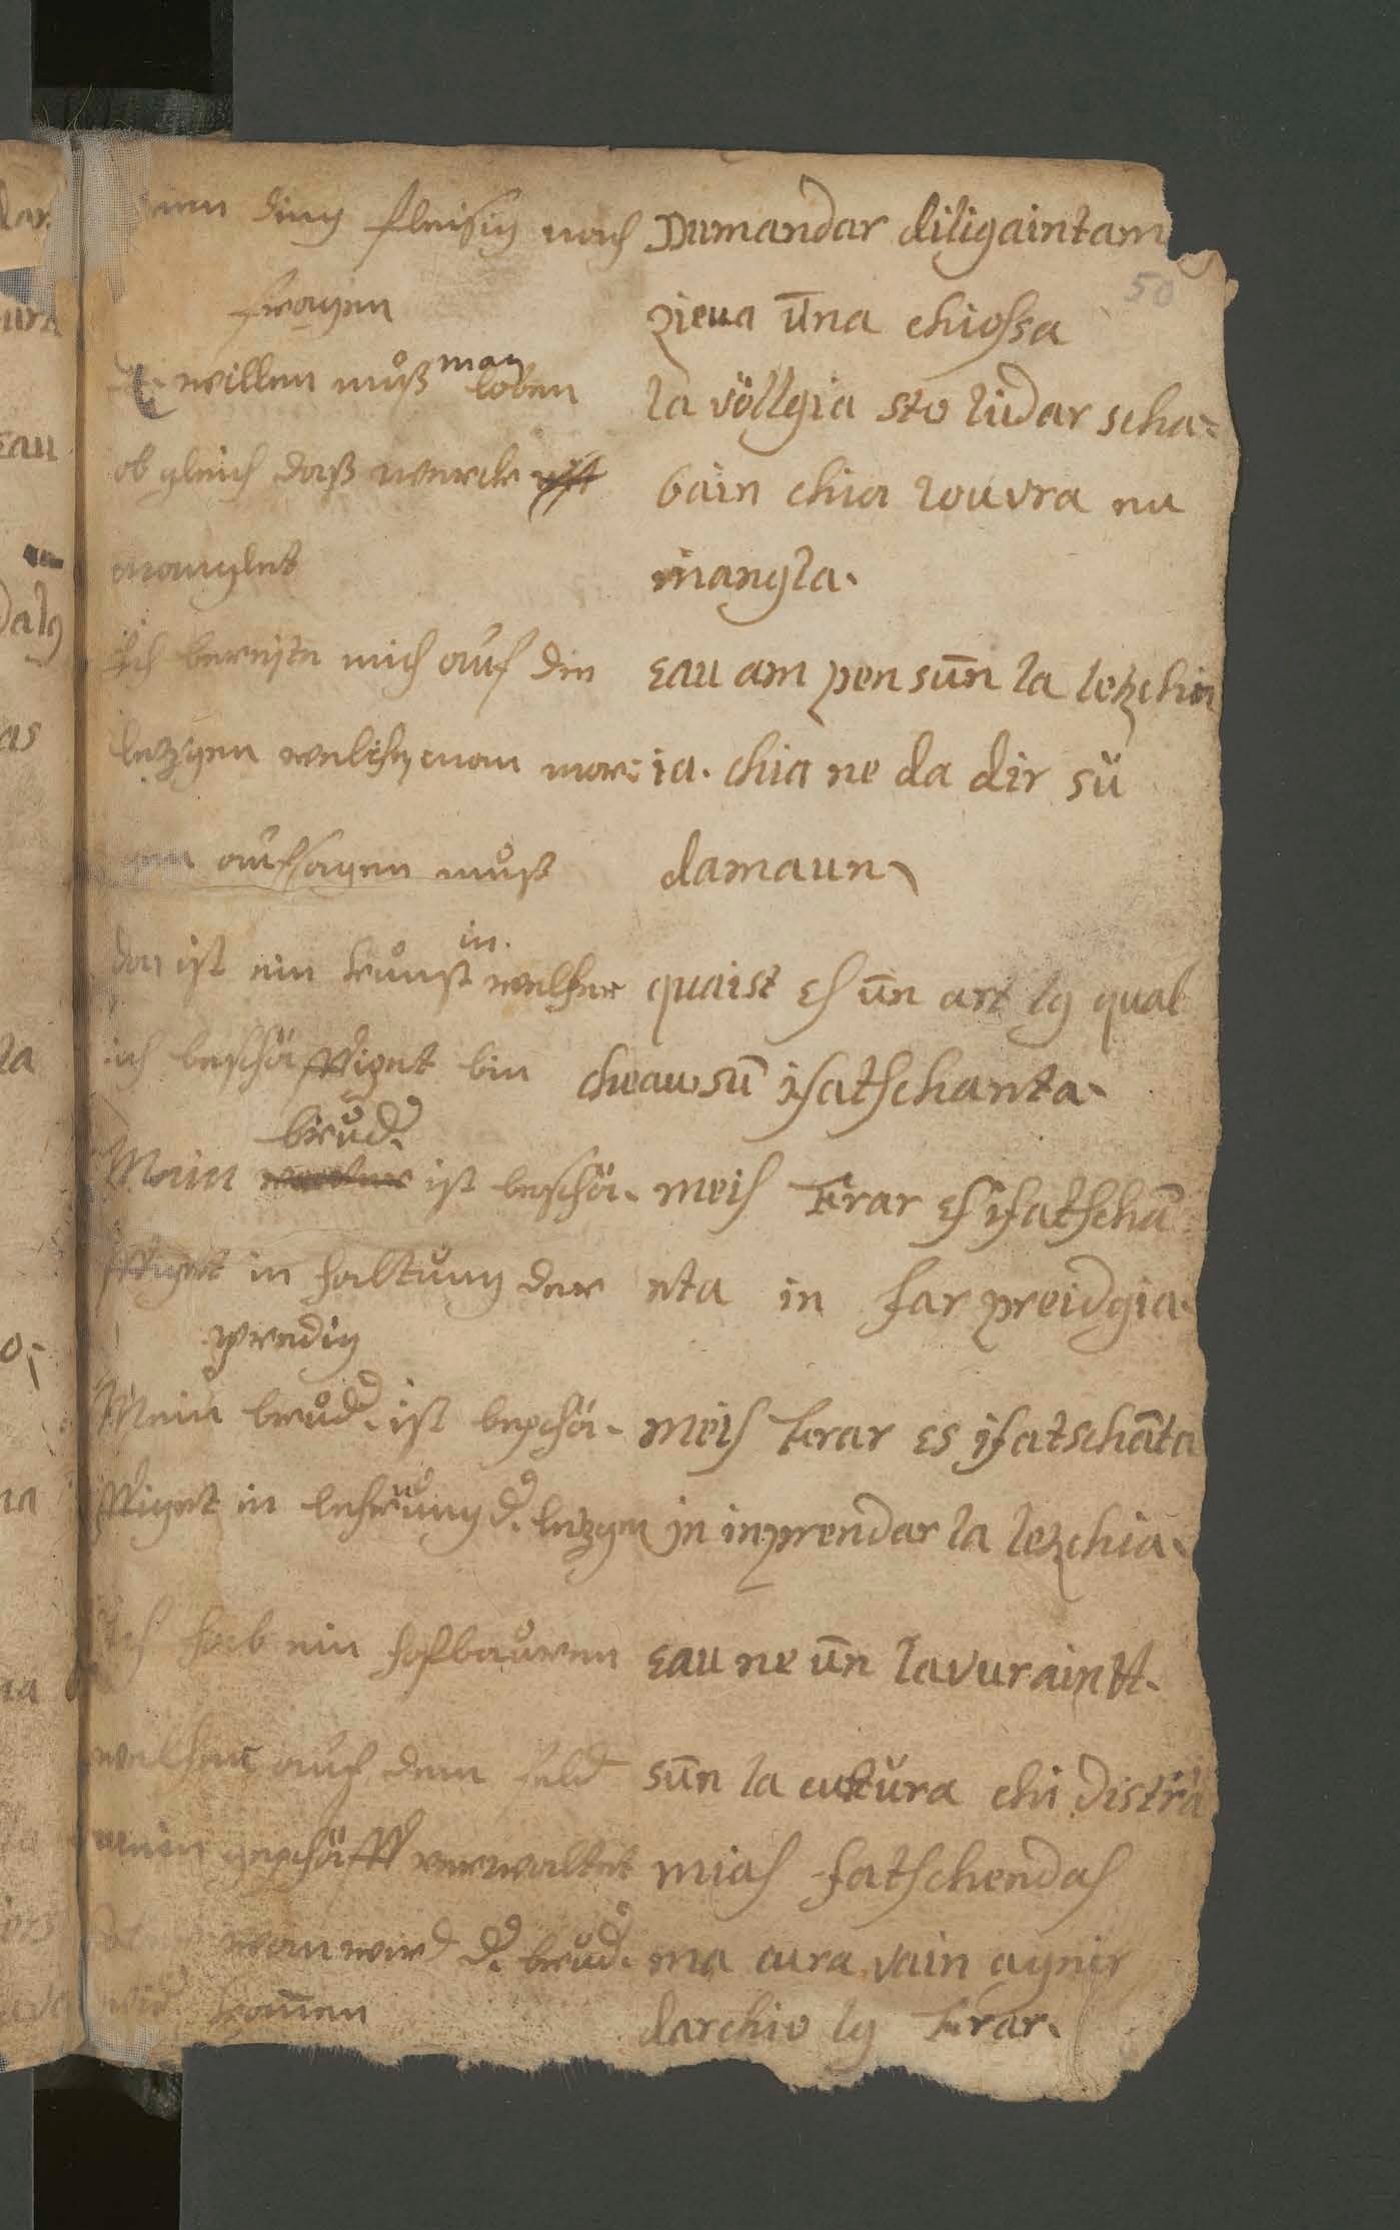 einem ding fleisig nach Dumandar diligaintam
50
fragen zieua ūna chiossa
willen můß man loben la völlgia sto lüdar scha-
ob gleich daß werck ist bain chia louvra nu
manglet mangla.
Ich bereite mich auf die Eau am pen sūn la letzchin
letzgen welche man mor- ia. chia ne da dir sü
gen aufsagen můß damaun
das ist ein kunst in welcher quaist es ūn art lg qual
ich beschäfftiget bin cheau sū ifatschanta.
brůd.
Mein ist beschä- meis frar es ifatschā
fftiget in haltung der nta in far preidgia.
predig
Mein brůd. ist beschä- meis frar es ifatschāta
fftiget in lehrnung d. letzgen in inprendar la letzchia.
Ich hab ein hofbauren Eau ne ūn lavuraintt.
welcher auf dem feld sūn la cultüra chi distrā
mein geschäfft verwaltet mias fatschendas
wan wird d. brůd. ma cura vain agnir
wid kom̄en darchio lg frar.